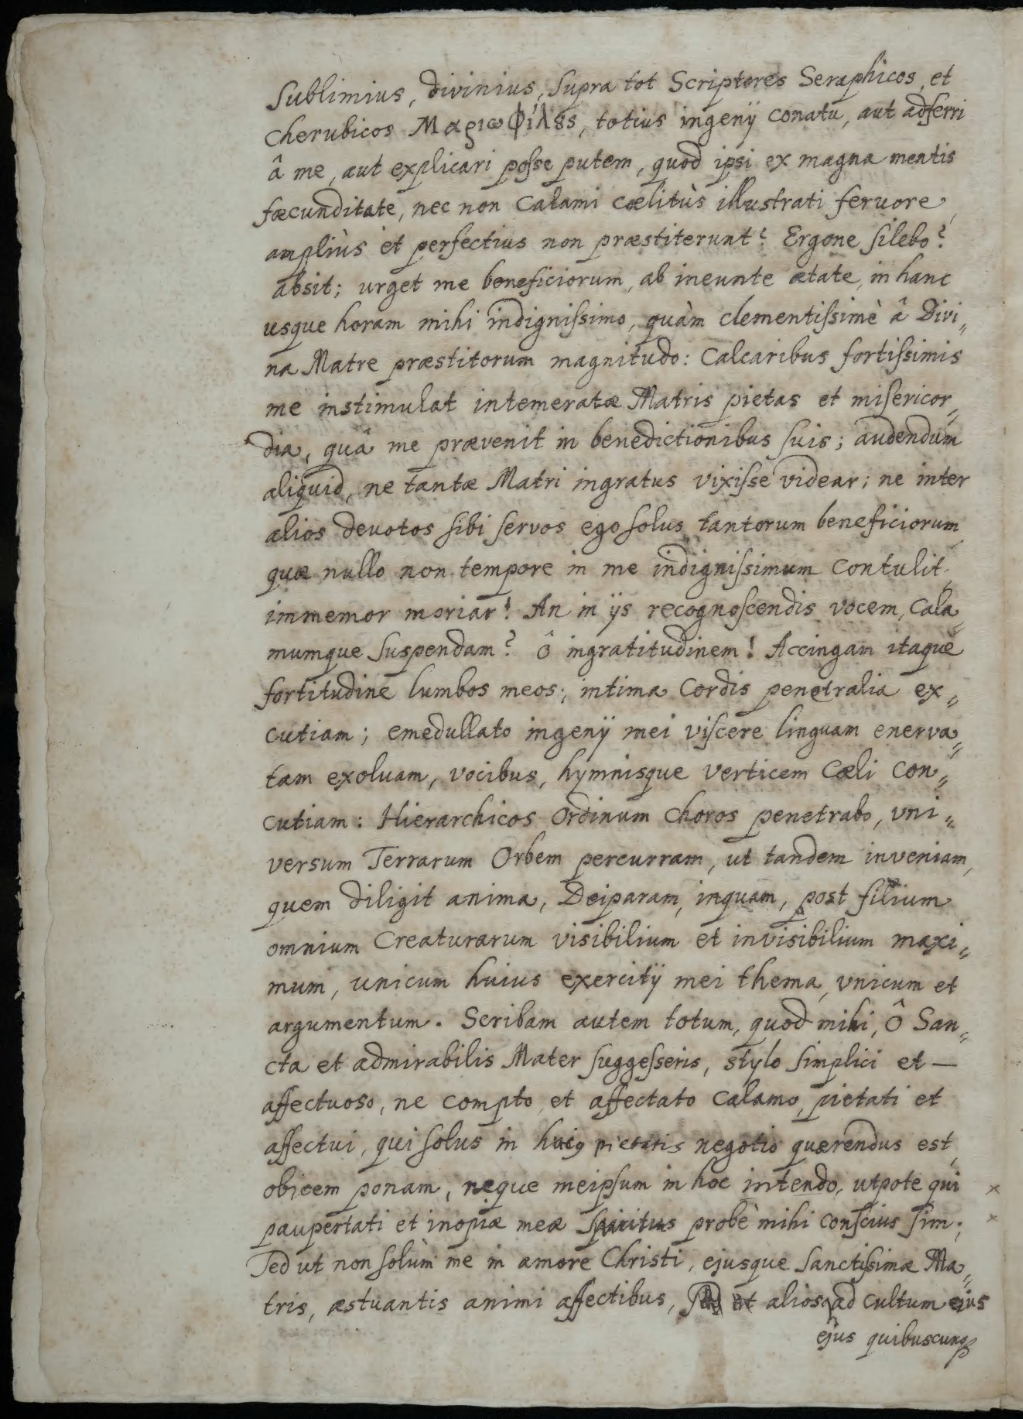 Sublimius, divinius, supra tot Scriptores Seraphicos, et
Cherubicos Μαριωφίλȣς, totius ingenÿ conatu, aut adferri
â me, aut explicari posse putem, quod ipsi ex magna mentis
fœcunditate, nec non Calami cœlitùs illustrati feruore,
ampliùs et perfectius non præstiterunt? Ergone silebo?
absit; urget me beneficiorum, ab ineunte ætate, in hanc
usque horam mihi indignissimo, quàm clementissimè â Divi„
na Matre præstitorum magnitudo: Calcaribus fortissimis
me instimulat intemeratæ Matris pietas et misericor„
dia, quâ me prævenit in benedictionibus suis; audendum
aliquid, ne tantæ Matri ingratus vixisse videar; ne inter
alios devotos sibi servos ego solus tantorum beneficiorum
quæ nullo non tempore in me indignissimum Contulit,
immemor moriar! An in ÿs recognoscendis vocem, Cala„
mumque suspendam? ô ingratitudinem! Accingam itaque
fortitudine lumbos meos; intima Cordis penetralia ex„
cutiam; emedullato ingenÿ mei viscere linguam enerva„
tam exoluam, vocibus, hymnisque verticem Cœli Con„
cutiam: Hierarchicos Ordinum Choros penetrabo, vni„
versum Terrarum Orbem percurram, ut tandem inveniam,
quem diligit anima, Deiparam, inquam, post filium
omnium Creaturarum visibilium et invisibilium maxi„
mum, unicum huius exercitÿ mei thema, vnicum et
argumentum. Scribam autem totum, quod mihi, ô San„
cta et admirabilis Mater suggesseris, stylo simplici et —
affectuoso, ne compto et affectato Calamo, pietati et
affectui, qui solus in pietatis negotio quærendus est,
obicem ponam, neque meipsum in hoc intendo, utpote qui
paupertati et inopiæ meæ spiritus probè mihi conscius sim;
Sed ut non solùm me in amore Christi, ejusque Sanctissimæ Ma„
tris, æstuantis animi affectibus, et alios ad cultum ejus
ejus quibuscunq